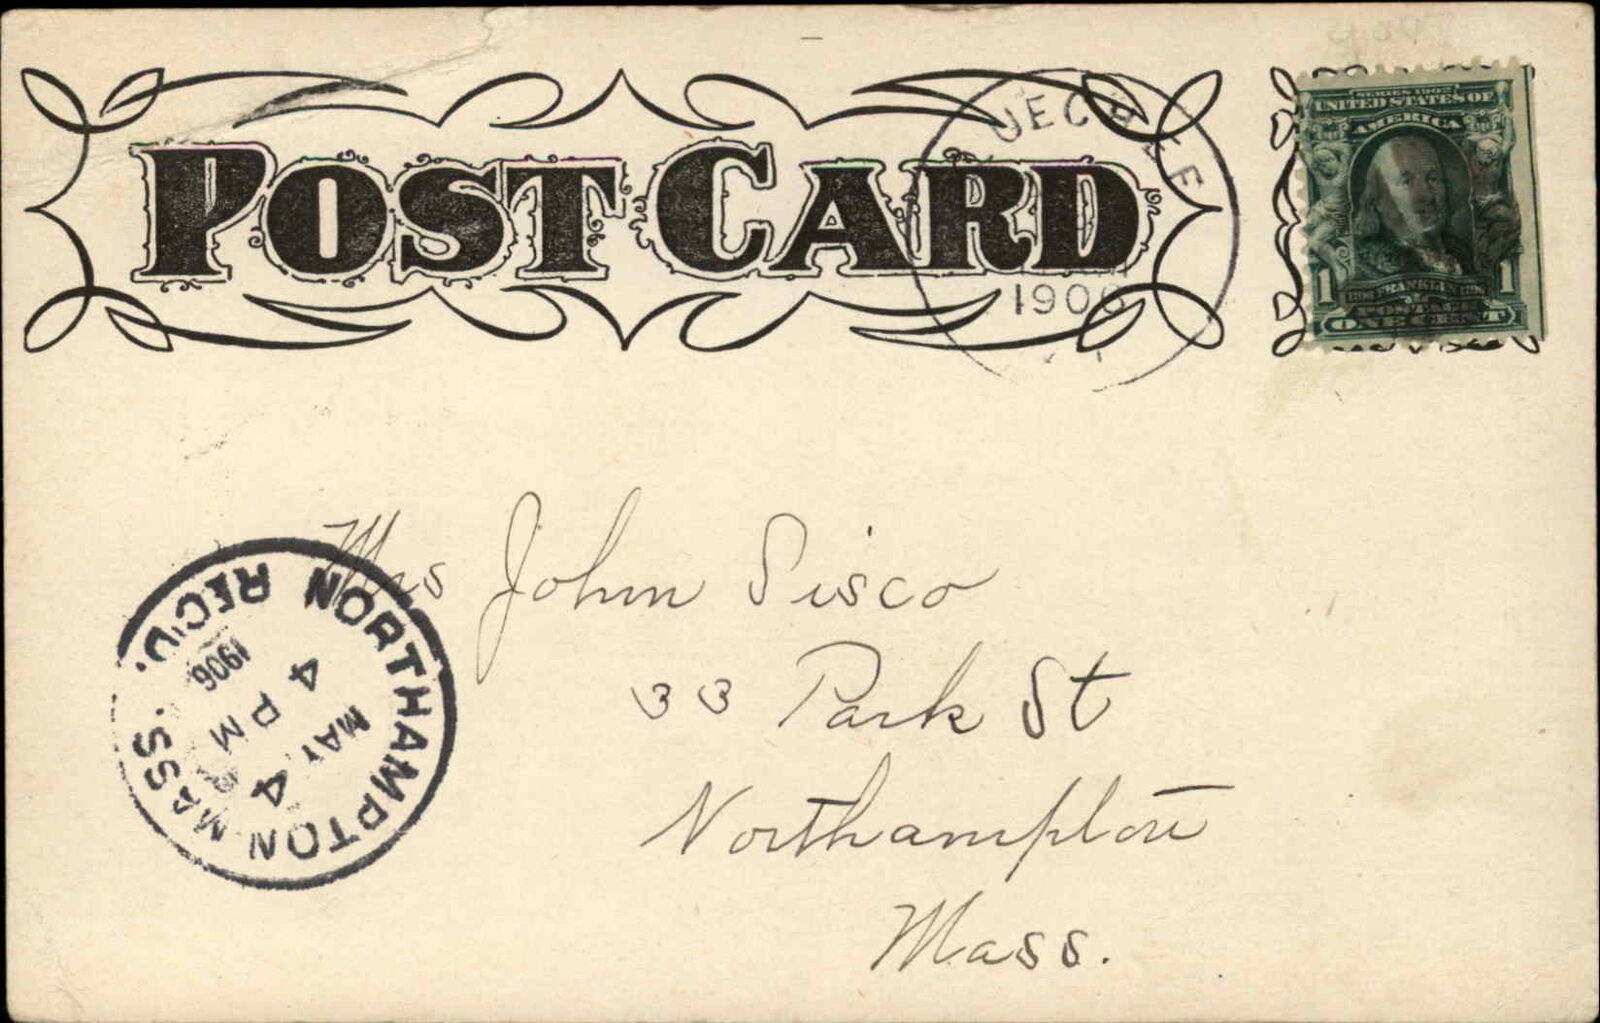 POST CARD
1906
SERIES 1902
UNITED STATES OF
AMERICA
1 FRANKLIN 1
POSTAGE
ONE CENT
Mrs John Sisco
33 Park St
Northampton
Mass.
NORTHAMPTON MASS. REC'D.
4 MAY 4 PM
1906